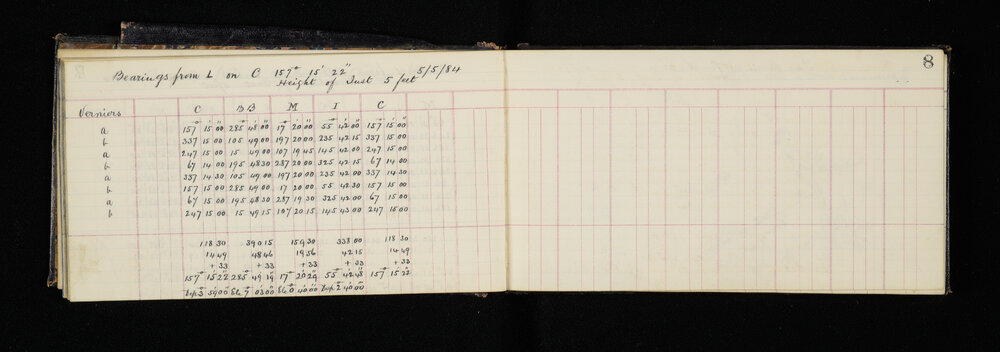 8
Bearings from L on C 157° 15' 22"
Height of Inst 5 feet 5/5/84
Verniers C BB M I C
a 157 15 00 285 48 00 17 20 00 55 42 00 157 15 00
b 337 15 00 105 49 00 197 20 00 235 42 15 337 15 00
a 247 15 00 15 49 00 107 19 45 145 42 00 247 15 00
b 67 14 00 195 48 30 287 20 00 325 42 15 67 14 00
a 337 14 30 105 49 00 197 20 00 235 42 00 337 14 30
b 157 15 00 285 49 00 17 20 00 55 42 30 157 15 00
a 67 15 00 195 48 30 287 19 30 325 42 00 67 15 00
b 247 15 00 15 49 15 107 20 15 145 43 00 247 15 00
118 30 390 15 159 30 338 00 118 30
14 49 48 46 19 56 42 15 14 49
+ 33 + 33 + 33 + 33 + 33
157° 15 22 285° 49 19 17° 20 29 55° 42 48 157° 15 22
3 59 00 7 03 00 0 40 00 2 40 00